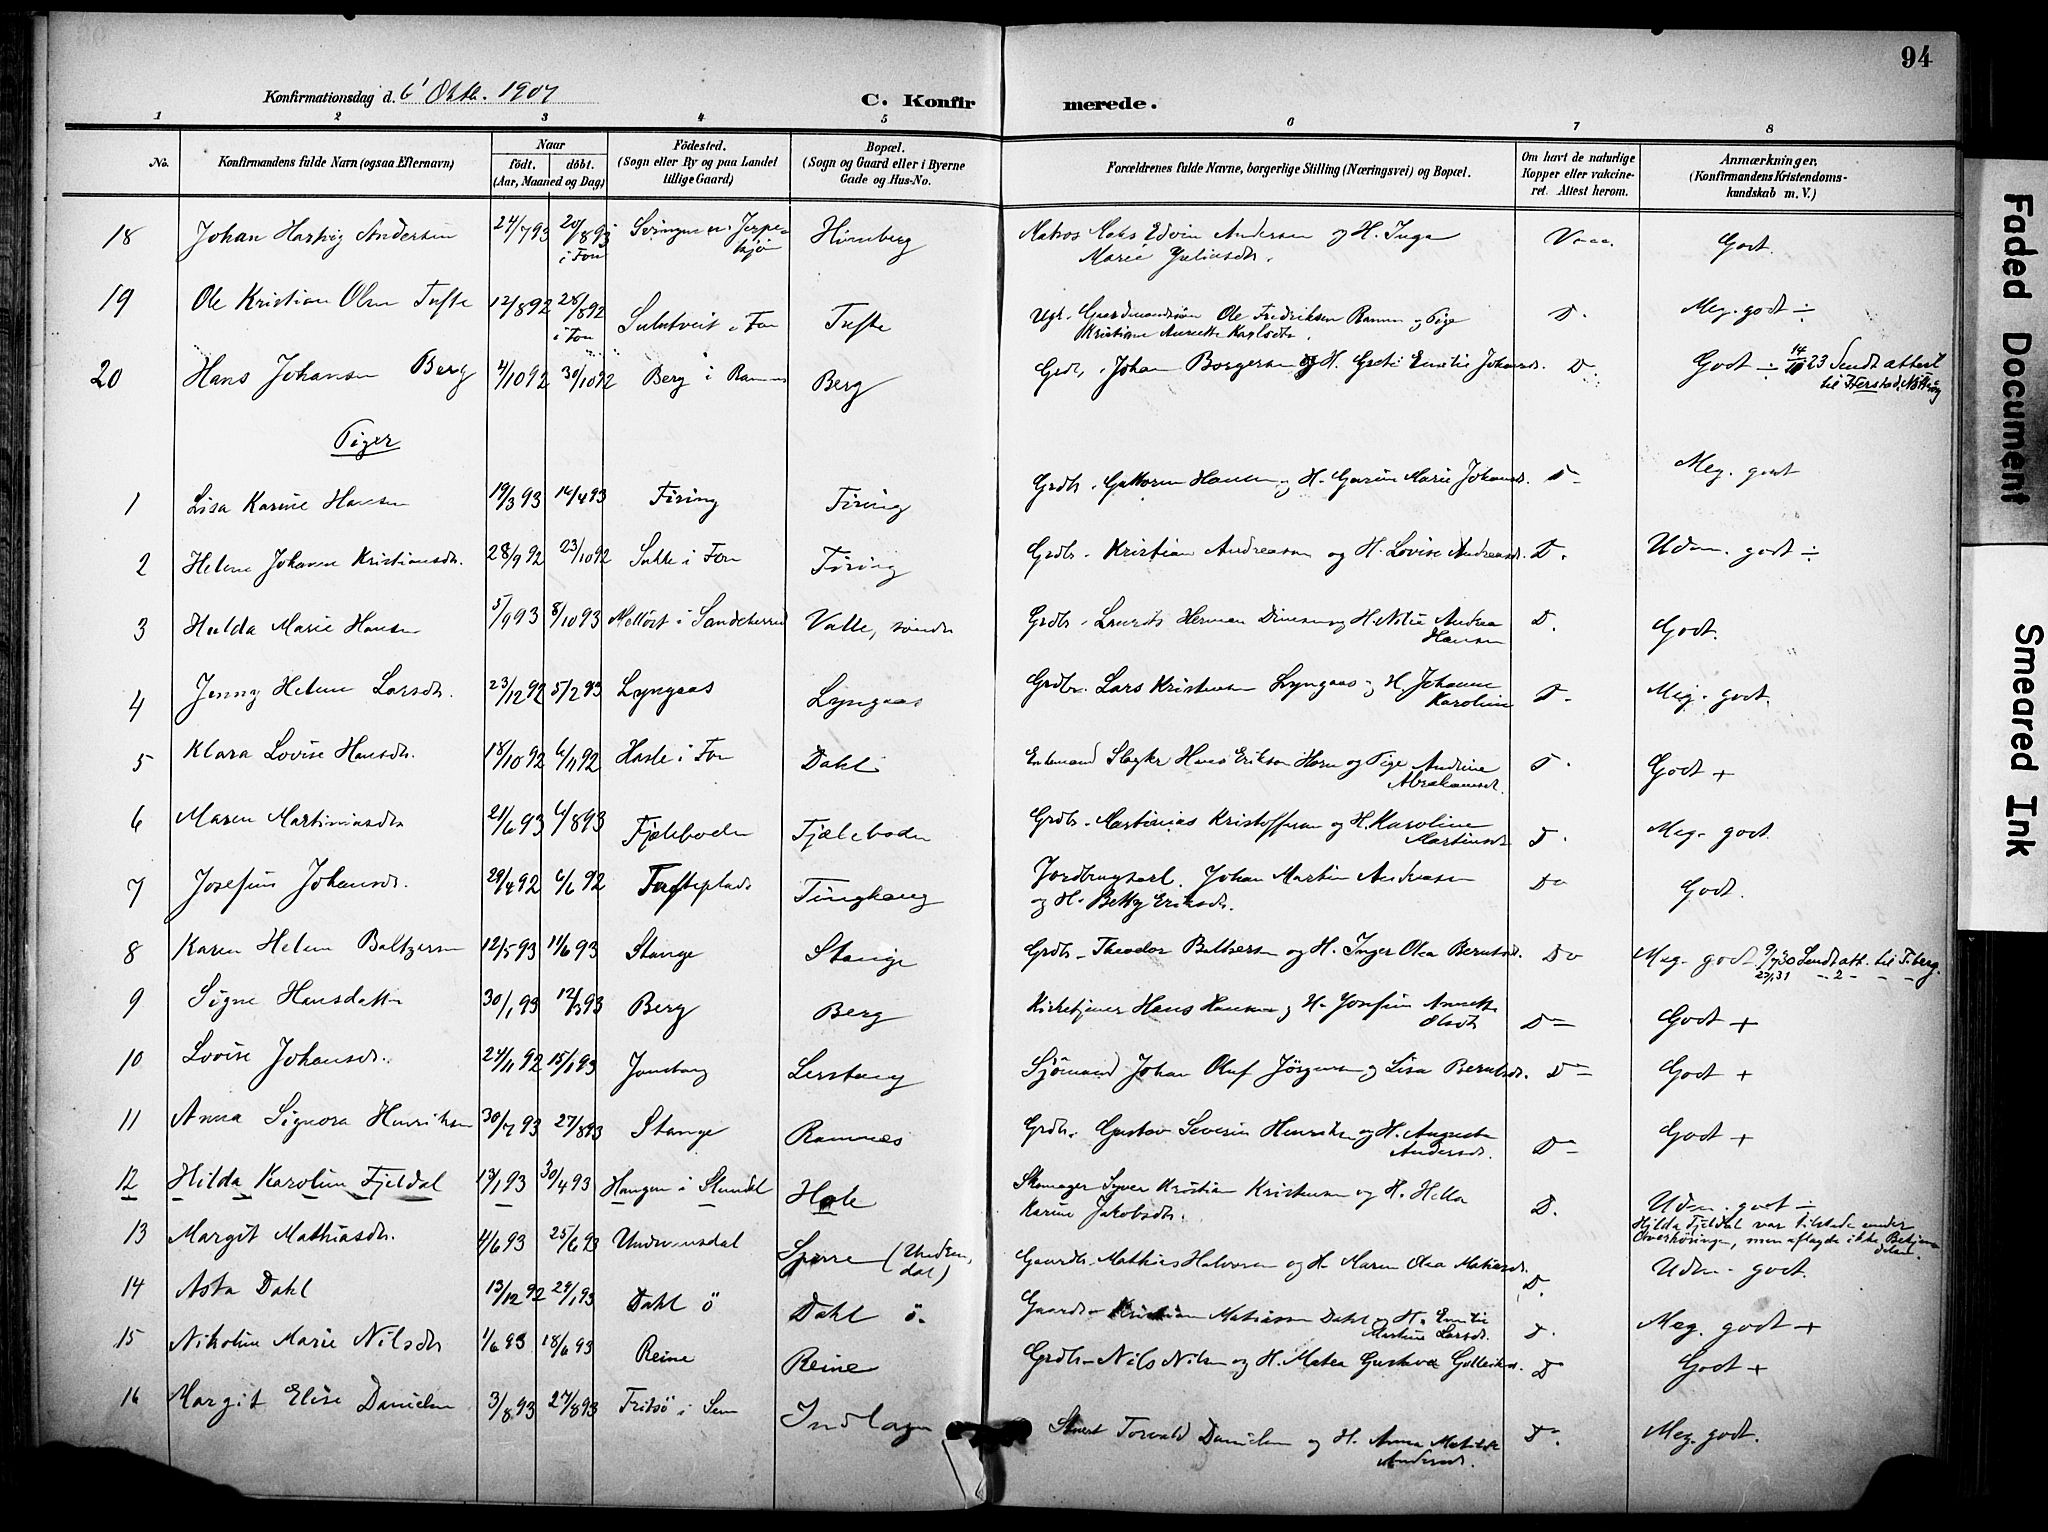 94
Konfirmationsdag d. 6' Oktb. 1907
C. Konfirmerede.
1 2 3 4 5 6 7 8
No.
Konfirmandens fulde Navn (ogsaa Efternavn)
Naar
födt. döbt.
(Aar, Maaned og Dag)
Födested.
(Sogn eller By og paa Landet
tillige Gaard)
Bopæl.
(Sogn og Gaard eller i Byerne
Gade og Hus-No.
Forældrenes fulde Navne, borgerlige Stilling (Næringsvei) og Bopæl.
Om havt de naturlige
Kopper eller vakcine-
ret. Attest herom.
Anmærkninger.
(Konfirmandens Kristendoms-
kundskab m. V.)
18 Johan Hartvig Andersen 24/7 93 20/8 93 i Fon Himberg Matros Edvin Andersen og H. Inga Marie Juliusdt. Godt.
19 Ole Kristian Olsen Tufte 12/8 92 28/8 92 i Fon Sulutveit i Fon Tufte Ugt. Gaardmandssön Ole Fredriksen Ramnes og Pige Kristine D. Meg. godt ÷
20 Hans Johansen Berg 4/10 92 30/10 92 Berg i Ramnes Berg Grdb. Johan Borgersen og H. Grete Emilie Johansd. D. Godt ÷ 14/10 23 Sendt attest til
Piger
1 Lisa Karine Hansen 19/3 93 16/4 93 Firing Firing Grdb. Guttorm Hansen og H. Gurine Marie Johansd. D- Meg. godt
2 Helene Johanne Kristiansdt. 28/9 92 23/10 92 Sukke i Fon Firing Grdb. Kristian Andreassen og H. Lovise Andreasdt. D. Udm. godt ÷
3 Hulda Marie Hansen 5/9 93 8/10 93 Sandeherred Valle, söndre Grdb. Herman og H. Andrea Hansen D. Godt.
4 Jenny Helene Larsdt. 23/12 92 5/2 93 Lyngaas Lyngaas Grdb. Lars Kristensen Lyngaas og H Johanne Karoline D. Meg. godt.
5 Klara Lovise Hansdt. 18/10 92 6/11 92 Hasle i Fon Dahl Enkemand Slagtr Hans Erikson Horn og Pige Andrine Abrahamsdt. D. Godt +
6 Maren Martiniusdt. 21/6 93 6/8 93 Fjæleboden Fjæleboden Grdb. Martinius Kristoffersen og H. Karoline Martinsdt. D. Meg. godt.
7 Josefine Johansdt. 29/4 92 6/6 92 Tufteplads Tinghaug Jordbrugsarb. Johan Martin Andreasen og H. Betty Eriksdt. Do Godt.
8 Karen Helene Baltzersen 12/5 93 11/6 93 Stange Stange Grdb. Theodor Baltzersen og H. Inger Olea Berntsdt. Do Meg. godt 9/7 30 Sendt att. til T.berg.
27/1 31 – 2 – – –
9 Signe Hansdatter 30/1 93 12/3 93 Berg Berg Kirketjener Hans Hansen og H. Josefine Annette Olsdt. D– Godt +
10 Lovise Johansdt. 24/11 92 15/1 93 Jonsberg Lerstang Sjömand Johan Oluf Jörgensen og Lisa Berntsdt. D– Godt +
11 Anna Signora Henriksen 30/7 93 27/8 93 Stange Ramnes Grdb. Gustav Severin Henriksen og H. Augusta Andersdt. D– Godt +
12 Hilda Karoline Fjeldal 13/1 93 30/4 93 Haugen i Slemdal Hole Skomager Syver Kristian Kristensen og H. Hella Karine Jakobsdt. D. Udm. godt ÷
Hilda Fjeldal var tilstede under Overhöringen, men aflagde ikke Bekjendelsen.
13 Margit Mathiasdt. 4/6 93 25/6 93 Undrumsdal Sperre (Undrumdal) Gaardb. Mathias Halvorsen og H Maren Olea Matiasdt. D. Udm. godt.
14 Asta Dahl 13/12 92 29/1 93 Dahl ö Dahl ö. Gaardb. Kristian Matiassen Dahl og H. Emilie Martine Larsdt. D. Meg. godt +
15 Nikoline Marie Nilsdt. 1/6 93 18/6 93 Reine Reine Grdb. Nils Nilsen og H. Matea Gustava Gulleiksd. D Godt +
16 Margit Elise Danielsen 3/8 93 27/8 93 Fritsö i Sem Indlagn Torvald Danielsen og H. Anna Matilde Andersdt. D. Meg. godt.
Faded Document
Smeared Ink